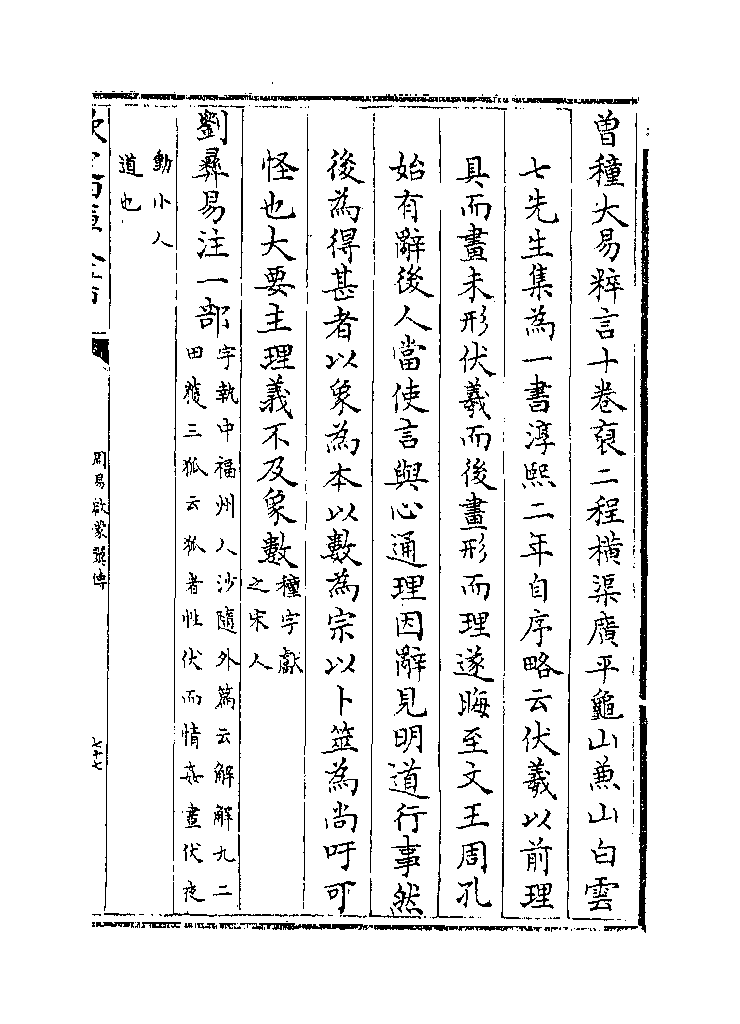 曽穜大易粹言十巻裒二程横渠廣平龜山兼山白雲
七先生集為一書淳熙二年自序略云伏羲以前理
具而畫未形伏羲而後畫形而理遂晦至文王周孔
始有辭後人當使言與心通理因辭見明道行事然
後為得甚者以象為本以數為宗以卜筮為尚吁可
怪也大要主理義不及象數穜字獻
之宋人
劉彞易注一部字執中福州人沙隨外篇云解解九二
田獲三狐云狐者性伏而情㚣晝伏夜
動小人
道也
周易啟蒙翼傳
七十七